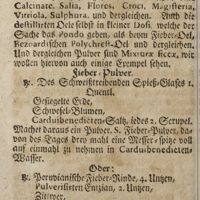 Calcinate, Salia, Flores, Croci, Magisteria,
Vitriola, Sulphura, und dergleichen. Auch die
destillirten Oele selbst in kleiner Dosi, welche der
Sache das Pondo geben, als beym Fieber-Oel,
Bezoardischen Polychrest-Oel und dergleichen.
Und dergleichen Pulver sind Mixturæ siccæ, wir
wollen hiervon auch einige Exempel sehen.
Fieber-Pulver.
℞. Des Schweißtreibenden Spieß-Glases 1.
Quentl.
Gesiegelte Erde,
Schwefel-Blumen,
Carduibenedicten-Saltz, jedes 2. Scrupel.
Machet daraus ein Pulver. S. Fieber-Pulver, da-
von des Tages drey mahl eine Messer-spitze voll
auf einmahl zu nehmen in Carduibenedicten-
Wasser.
Oder:
℞. Peruvianische-Fieber-Rinde, 4. Untzen,
Pulverisirten Entzian, 2. Untzen,
Zittwer,